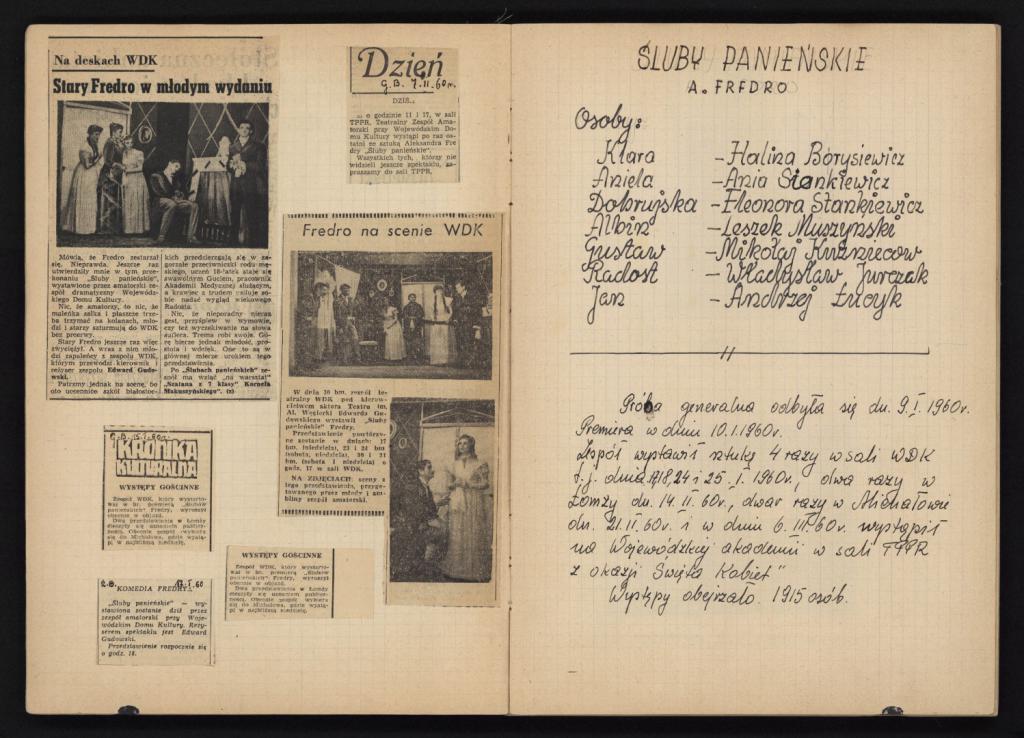 Na deskach WDK
Stary Fredro w młodym wydaniu
Mówią, że Fredro zestarzał
się. Nieprawda. Jeszcze raz
utwierdziły mnie w tym prze-
konaniu „Śluby panieńskie",
wystawione przez amatorski ze-
spół dramatyczny Wojewódz-
kiego Domu Kultury.
Nic, że amatorzy, to nic, że
maleńka salka i płaszcze trze-
ba trzymać na kolanach, mło-
dzi i starzy szturmują do WDK
bez przerwy.
Stary Fredro jeszcze raz więc
zwyciężył. A wraz z nim mło-
dzi zapaleńcy z zespołu WDK,
którym przewodzi kierownik i
reżyser zespołu Edward Gudo-
wski.
Patrzmy jednak na scenę, bo
oto uczennice szkół białostoc-
kich przedzierzgają się w za-
gorzałe przeciwniczki rodu mę-
skiego, uczeń 18-latek staje się
swawolnym Guciem, pracownik
Akademii Medycznej służącym,
a krawiec z trudem usiłuje so-
bie nadać wygląd wiekowego
Radosta.
Nic, że nieporadny nieraz
gest, przyśpiew w wymowie,
czy też wyczekiwanie na słowa
suflera. Trema robi swoje. Gó-
rę bierze jednak młodość, pro-
stota i wdzięk. One to są w
głównej mierze urokiem tego
przedstawienia.
Po „Ślubach panieńskich" ze-
spół ma wziąć „na warsztat"
„Szatana z 7 klasy" Kornela
Makuszyńskiego". (z)
G.B. 15.I.60r.
KRONIKA
KULTURALNA
WYSTĘPY GOŚCINNE
Zespół WDK, który wystarto-
wał w br. premierą „Ślubów
panieńskich" Fredry, wyruszył
obecnie w objazd.
Dwa przedstawienia w Łomży
cieszyły się uznaniem publicz-
ności. Obecnie zespół wybiera
się do Michałowa, gdzie wystą-
pi w najbliższą niedzielę.
G.B. 17.I.60
KOMEDIA FREDRY...
„Śluby panieńskie" — wy-
stawiona zostanie dziś przez
zespół amatorski przy Woje-
wódzkim Domu Kultury. Reży-
serem spektaklu jest Edward
Gudowski.
Przedstawienie rozpocznie się
o godz. 18.
Dzień
G.B. 7.II.60r.
DZIŚ...
... o godzinie 11 i 17, w sali
TPPR, Teatralny Zespół Ama-
torski przy Wojewódzkim Do-
mu Kultury wystąpi po raz os-
tatni ze sztuką Aleksandra Fre
dry „Śluby panieńskie".
Wszystkich tych, którzy nie
widzieli jeszcze spektaklu, za-
praszamy do sali TPPR.
Fredro na scenie WDK
W dniu 10 bm. zespół te-
atralny WDK pod kierow-
nictwem aktora Teatru im.
Al. Węgierki Edwarda Gu-
dowskiego wystawił „Śluby
panieńskie" Fredry.
Przedstawienie powtórzo-
ne zostanie w dniach: 17
bm. (niedziela), 23 i 24 bm
(sobota, niedziela), 30 i 31
bm. (sobota i niedziela) o
godz. 17 w sali WDK.
NA ZDJĘCIACH: sceny z
tego przedstawienia, przygo-
towanego przez młody i am-
bitny zespół amatorski.
WYSTĘPY GOŚCINNE
Zespół WDK, który wystarto-
wał w br. premierą „Ślubów
panieńskich" Fredry, wyruszył
obecnie w objazd.
Dwa przedstawienia w Łomży
cieszyły się uznaniem publicz-
ności. Obecnie zespół wybiera
się do Michałowa, gdzie wystą-
pi w najbliższą niedzielę.
ŚLUBY PANIEŃSKIE
A. FREDRO
Osoby:
Klara – Halina Borysiewicz
Aniela – Ania Sienkiewicz
Dobrujska – Eleonora Stankiewicz
Albin – Leszek Muszyński
Gustaw – Mikołaj Kuźniecow
Radost – Władysław Jurczak
Jan – Andrzej
Próba generalna odbyła się dn. 9.I.1960r.
Premiera w dniu 10.1.1960r.
Zespół wystawił sztukę 4 razy w sali WDK
t.j. dnia 18,24 i 25.I.1960r., dwa razy w
Łomży dn. 14.II.60r., dwa razy w Michałowie
dn. 21.II.60r. i w dniu 6.III.60r. wystąpił
na Wojewódzkiej akademii w sali TPPR
z okazji Święta Kobiet"
Występy obejrzało 1915 osób.